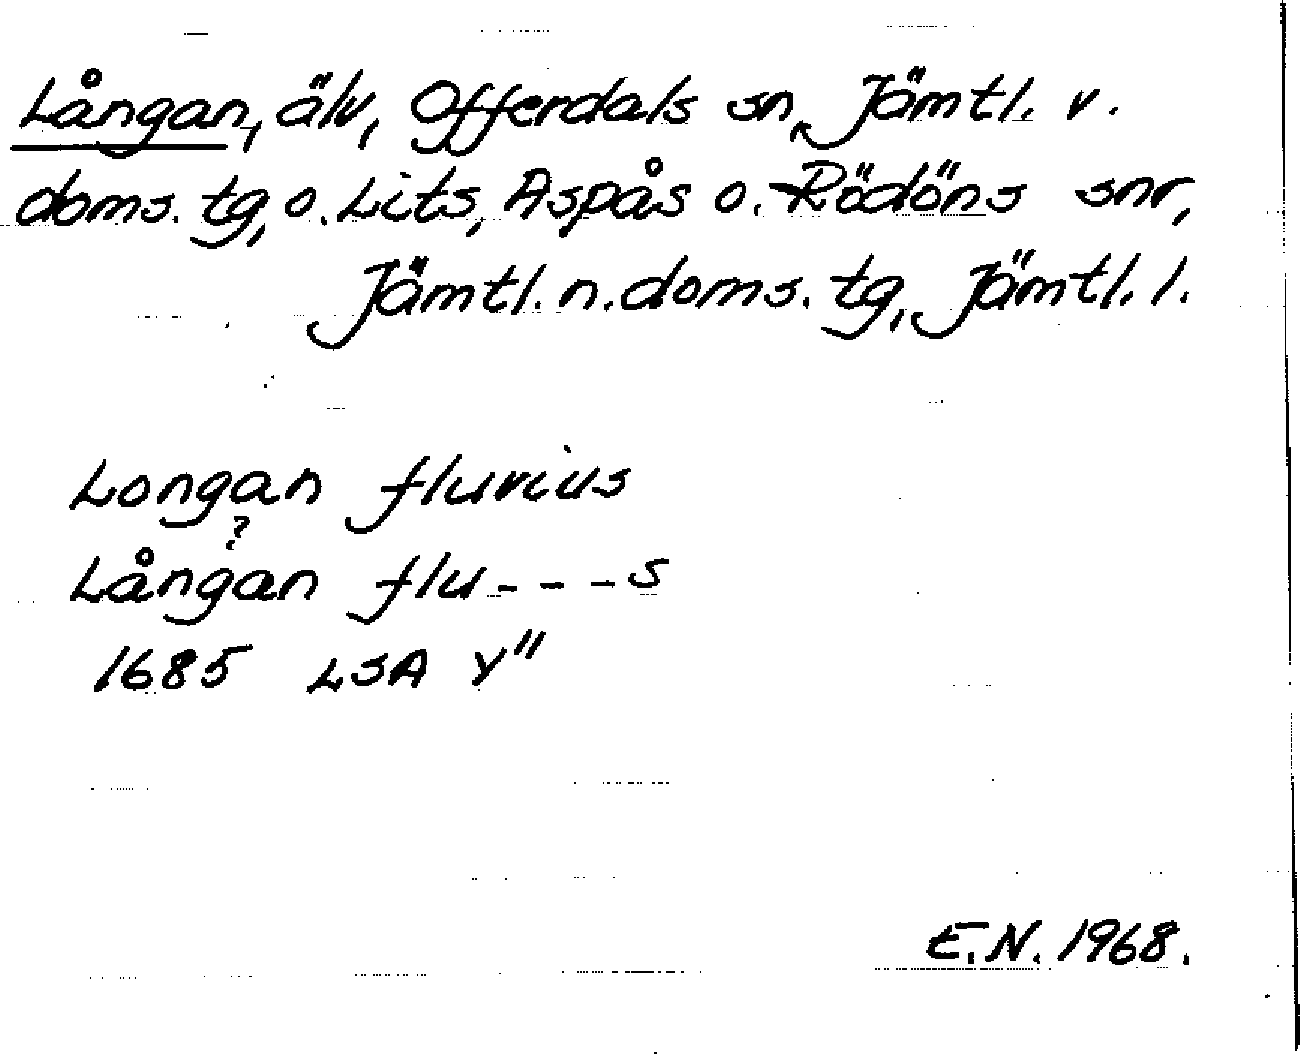 Långan, älv, Offerdals sn, Jämtl. v.
doms. tg, o. Lits, Aspås o. Rödöns snr,
Jämtl. n. doms. tg, Jämtl. l.
Longan fluvius
?
Långan flu - - - s
1685 LSA Y"
E.N. 1968.